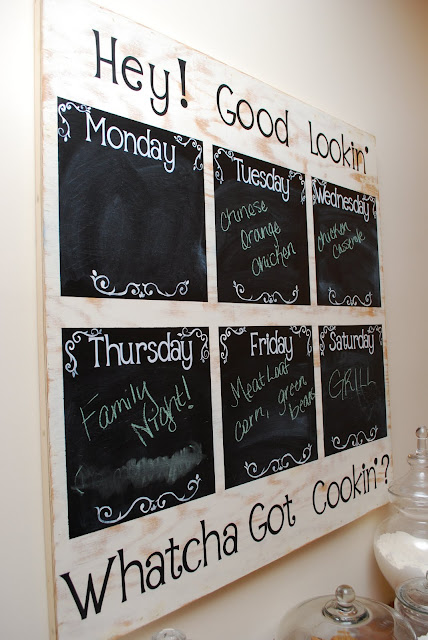 Hey! Good Lookin'
Monday
Tuesday
Chinese
Orange
Chicken
Wednesday
Chicken
Casserole
Thursday
Family
Night!
Friday
Meatloaf
corn, green
beans
Saturday
GRILL
Whatcha Got Cookin'?